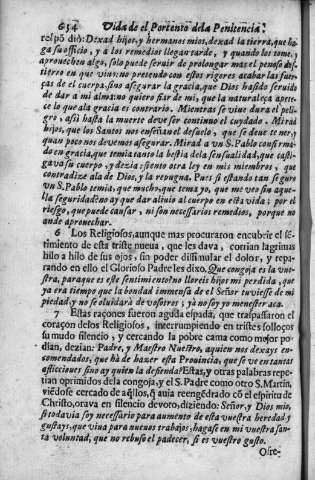 634 Vida de el Portento de la Penitencia.
respõ diò: Dexad hijos, y hermanos mios, dexad la tierra, que ha-
ga su oficio, y a los remedios llegan tarde, y quando los tome, y
aprouechen algo, solo puede seruir de prolongar mas el penoso des-
tierro en que viuo: no pretendo con estos rigores acabar las fuer-
ças de el cuerpo, sino asegurar la gracia, que Dios ha sido seruido
de dar a mi alma: no quiero fiar de mi, que la naturaleça apete-
ce lo que ala gracia es contrario. Mientras se viue dura el peli-
gro, asi hasta la muerte deve ser continuo el cuydado. Mirad
hijos, que los Santos nos enseñan el desuelo, que se deue tener, y
quan poco nos devemos asegurar. Mirad a vn S. Pablo confirma-
do en gracia, que temia tanto la bestia dela sensualidad, que casti-
gava su cuerpo, y dezia; siento otra ley en mis miembros, que
contradize ala de Dios, y la repugna. Pues si estando tan seguro
vn S. Pablo temia, que mucho, que tema yo, que me veo sin aque-
lla seguridad? no ay que dar aliuio al cuerpo en esta vida; por el
riesgo, que puede causar, ni son necessarios remedios, porque no
ande aprouechar.
6 Los Religiosos, aunque mas procuraron encubrir el sẽ-
timiento de esta triste nueua, que les dava, corrian lagrimas
hilo a hilo de sus ojos, sin poder dissimular el dolor, y repa-
rando en ello el Glorioso Padre les dixo. Que congoja es la vue-
stra, para que es esse sentimiento? no lloreis hijos mi perdida, que
ya era tiempo que la bondad immensa de el Señor tuviesse de mi
piedad y no se oluidarà de vosotros, ya no soy yo menester aca.
7 Estas raçones fueron aguda espada, que traspassaron el
coraçon delos Religiosos, interrumpiendo en tristes solloços
su mudo silencio, y cercando la pobre cama como mejor po-
dian, dezian: Padre, y Maestro Nuestro, a quien nos dexays en-
comendados, que hà de hazer esta Prouincia, que se ve en tantas
aflicciones sino ay quien la defienda? Estas, y otras palabras repe-
tian oprimidos dela congoja, y el S. Padre como otro S. Martin,
viẽdose cercado de aq̃llos, q̃ auia reengẽdrado cõ el espiritu de
Christo, orava en silencio devoto, diziendo: Señor, y Dios mio,
si todavia soy necessario para aumento de esta vuestra heredad, y
gustays, que viua para nueuos trabajos, hagase en mi vuestra san-
ta voluntad, que no rehuso el padecer, si es vuestro gusto.
Oste-